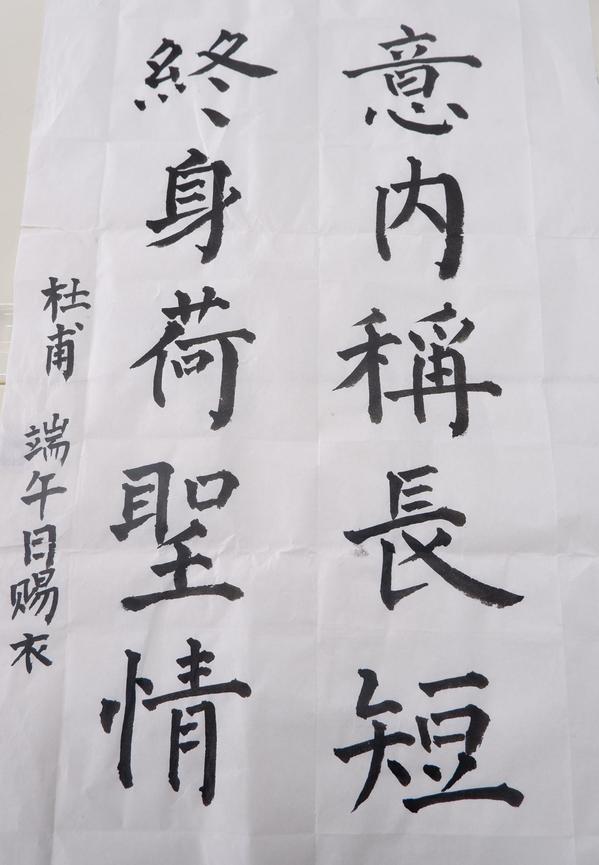 意内稱長短
終身荷聖情
杜甫 端午日賜衣